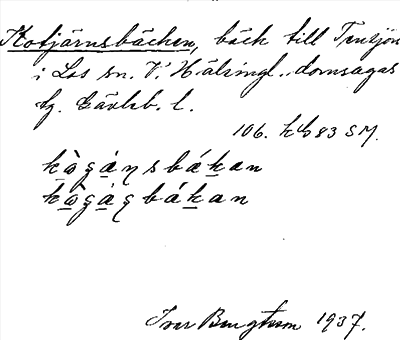 Kotjärnsbäcken, bäck till Tensjön
i Los sn. V. Hälsingl. domsagas
tg. Gävleb. l.
106. hb 83 SM.
kògánsbákan
kògágbákan
Ivar Bengtsson 1937.